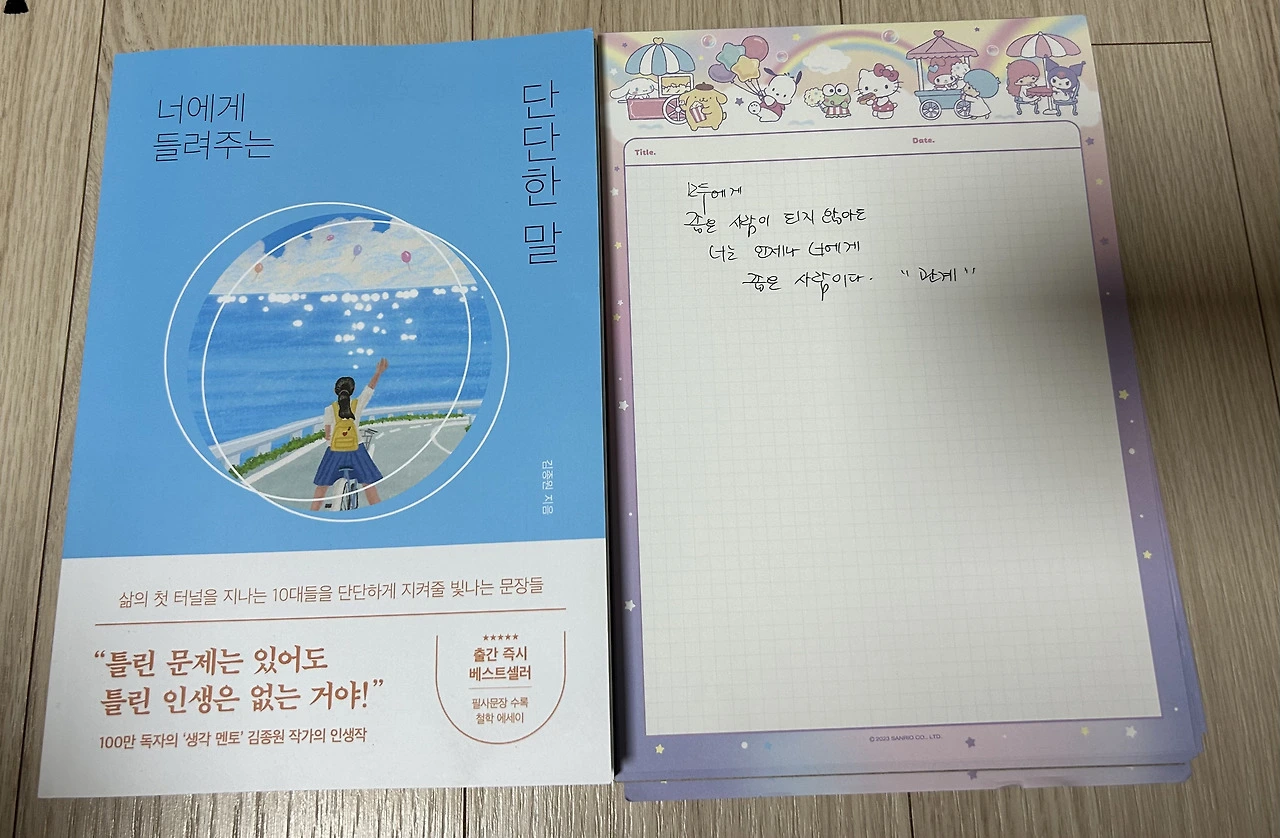 너에게
들려주는
단단한 말
김종원 지음
삶의 첫 터널을 지나는 10대들을 단단하게 지켜줄 빛나는 문장들
“틀린 문제는 있어도
틀린 인생은 없는 거야!”
100만 독자의 ‘생각 멘토’ 김종원 작가의 인생작
★★★★★
출간 즉시
베스트셀러
필사문장 수록
철학 에세이
Title.
Date.
모두에게
좋은 사람이 되지 않아도
너는 언제나 너에게
좋은 사람이다. "관계"
© 2023 SANRIO CO., LTD.